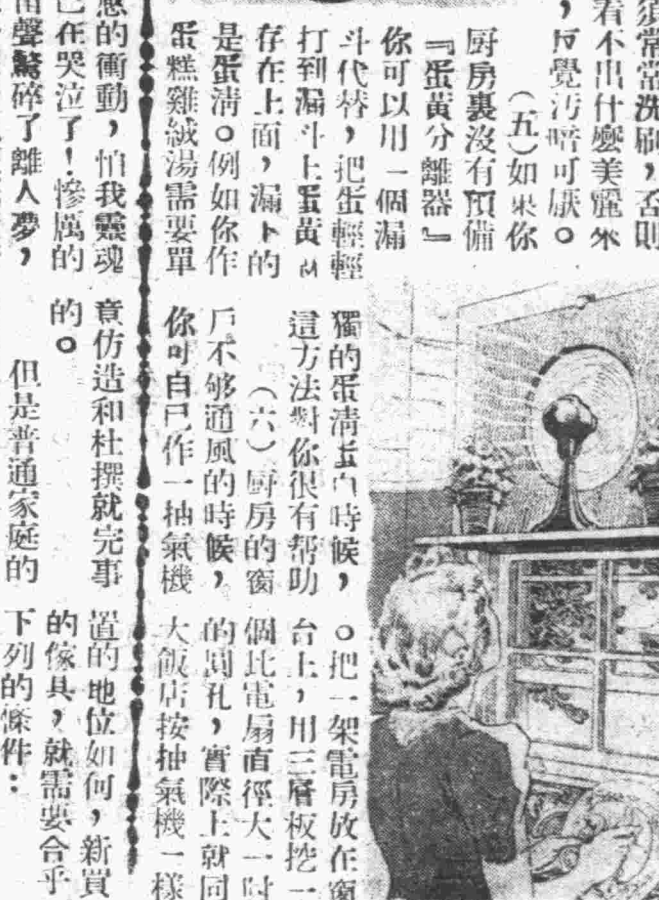 須常常洗刷,否則
看不出什麼美麗來
,反覺汚暗可厭。
(五)如果你
厨房裏沒有預備
『蛋黃分離器』
你可以用一個漏
斗代替,把蛋輕輕
打到漏斗上蛋黃
存在上面,漏下的
是蛋淸。例如你作
蛋糕雞絨湯需要單
獨的蛋淸蛋白時候,
這方法對你很有帮助
(六)厨房的窗
戶不够通風的時候,
你可自己作一抽氣機
。把一架電房放在窗
台上,用三層板挖一
個比電扇直徑大一吋
的圓孔,實際上就同
大飯店按抽氣機一樣
的衝動,怕我靈魂
已在哭泣了!慘厲的
笛聲驚碎了離人夢,
意仿造和杜撰就完事
的。
但是普通家庭的
置的地位如何,新買
的傢具,就需要合乎
下列的條件: